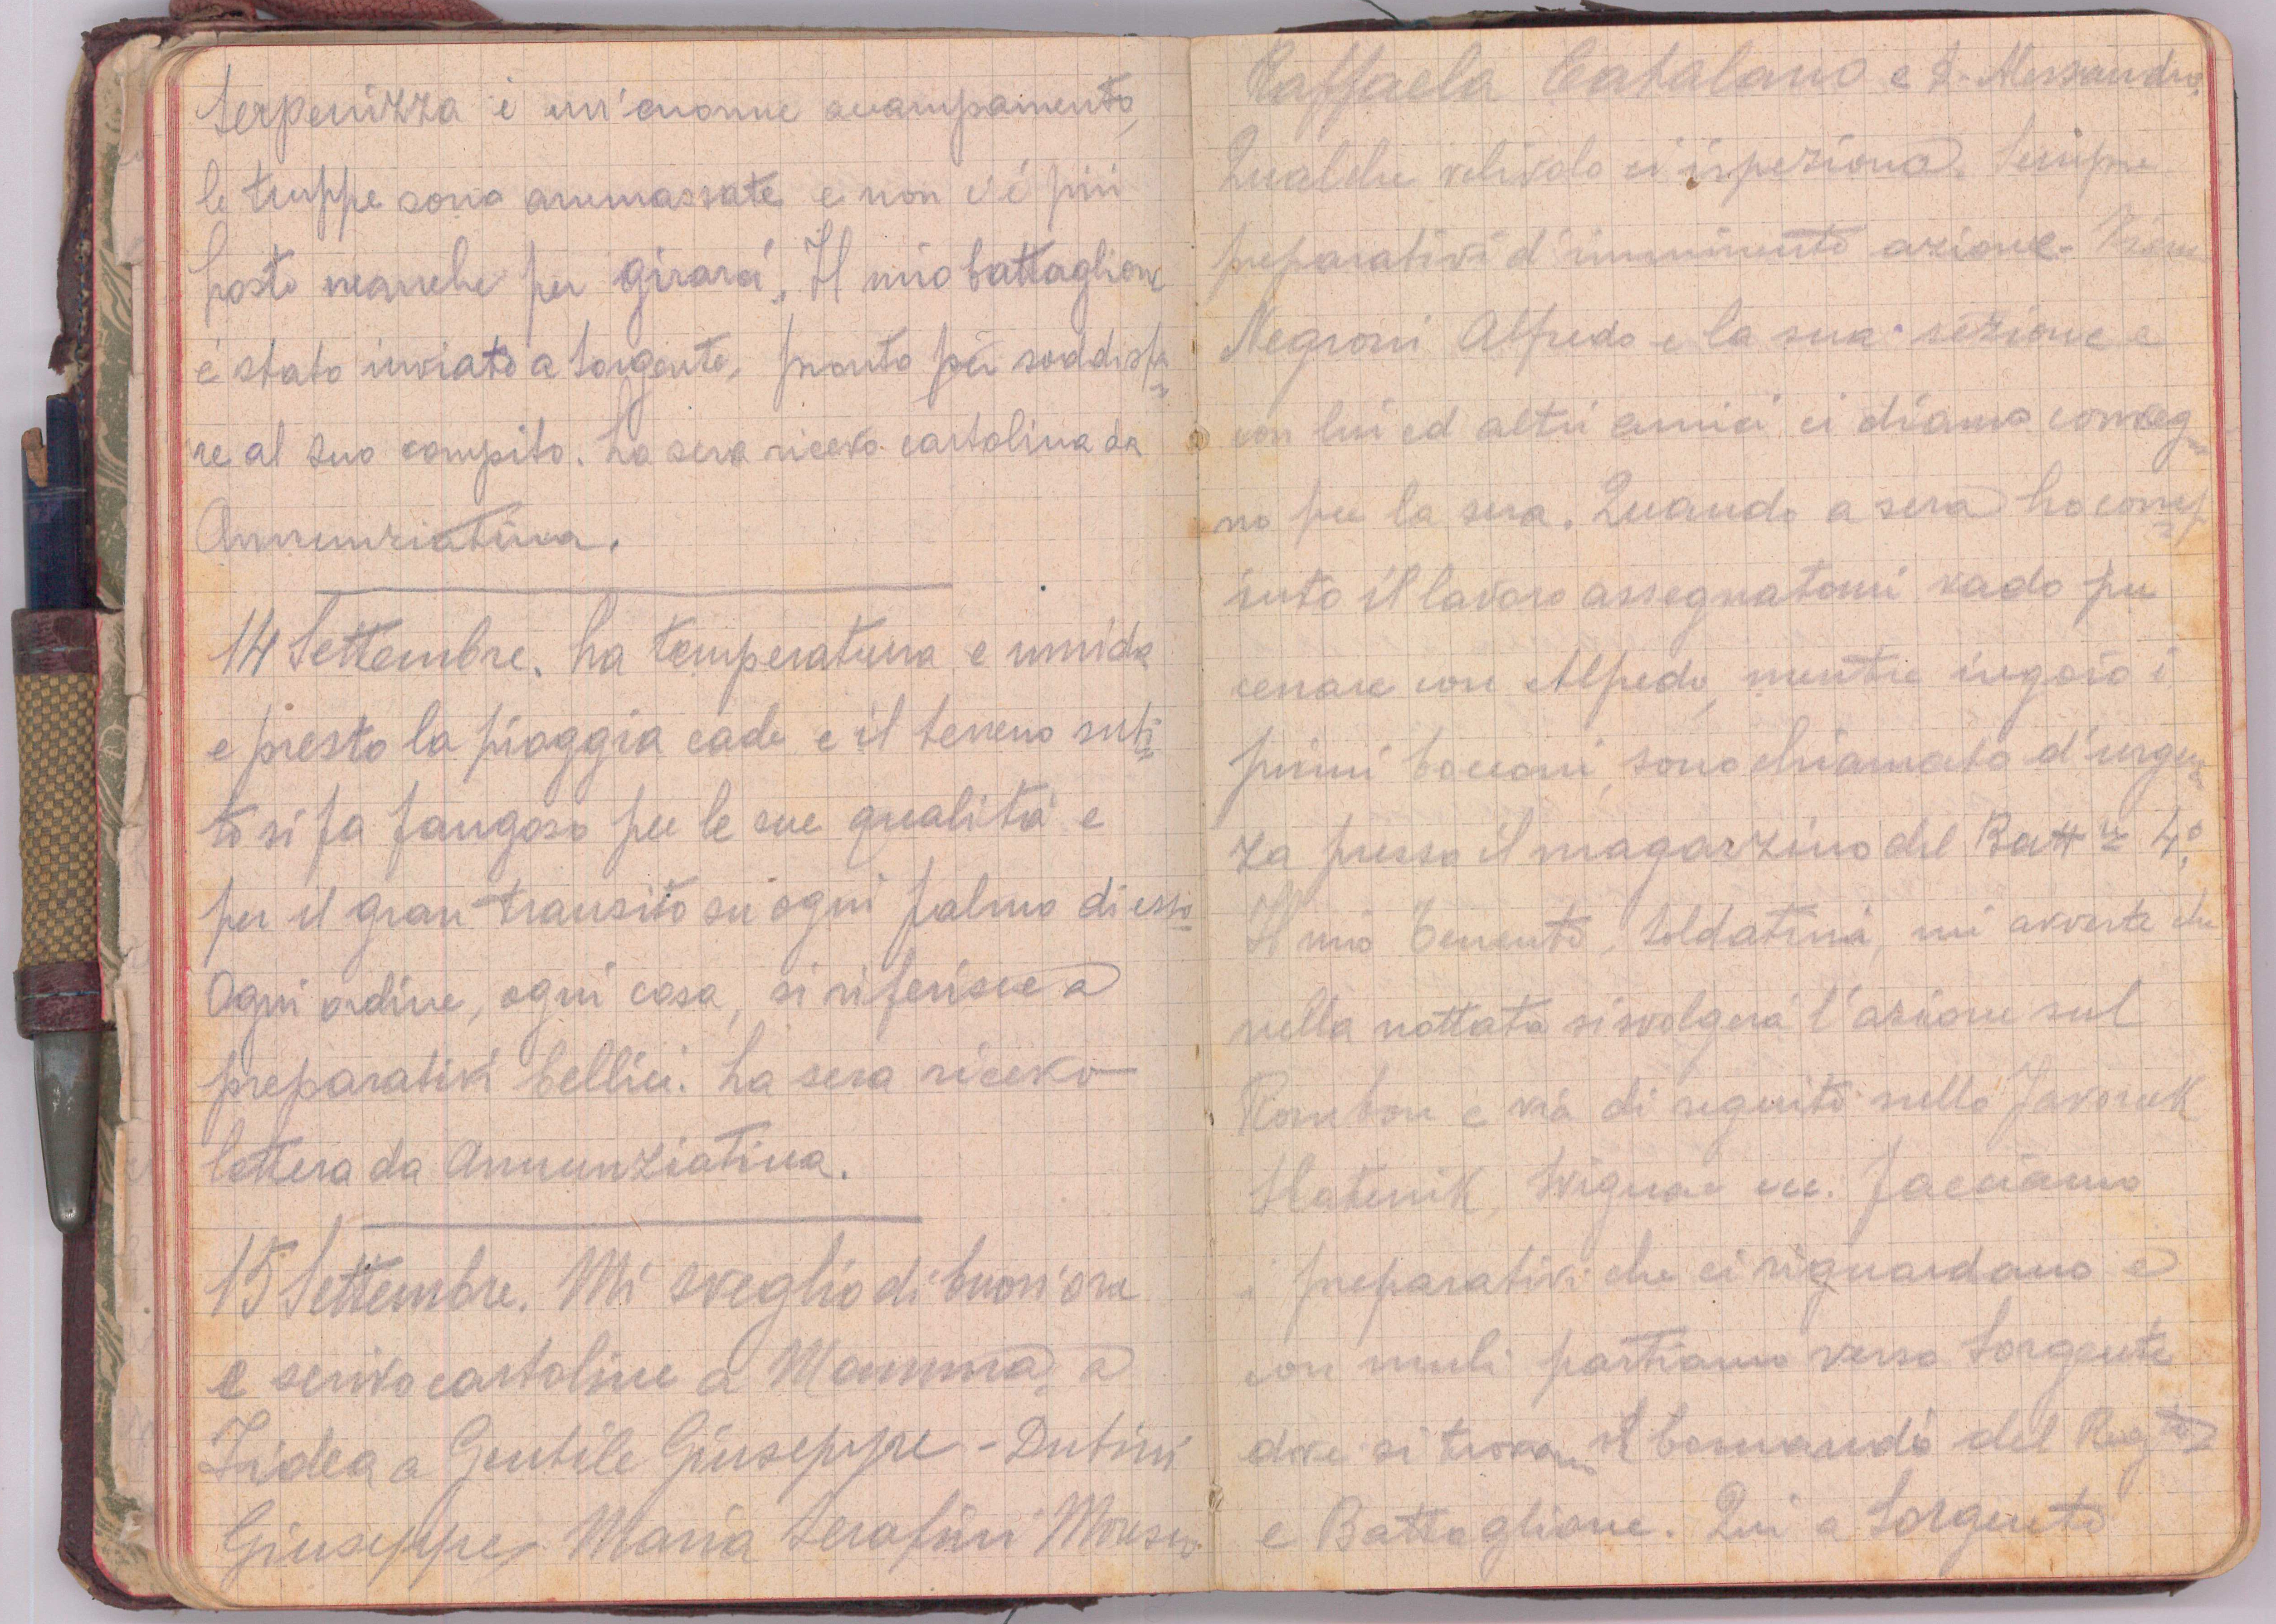 Serpenizza è un'enorme accampamento,
le truppe sono ammassate e non v'è più
posto neanche per girarci. Il mio battaglione
è stato inviato a Sorgente, pronto per soddisfa=
re al suo compito. La sera ricevo cartolina da
Annunziatina.
14 Settembre. La temperatura e umida
e presto la pioggia cade e il terreno subi=
to si fa fangoso per le sue qualità e
per il gran transito su ogni palmo di esso
Ogni ordine, ogni cosa, si riferisce a
preparativi bellici. La sera ricevo
lettera da Annunziatina.
15 Settembre. Mi sveglio di buon'ora
e scrivo cartoline a Mamma, a
a Gentile Giuseppe - Dutini
Giuseppe, Maria Serafini
Raffaela Catalano e
Qualche velivolo ci ispeziona. Sempre
preparativi d'imminente azione.
Negroni Alfredo e la sua sezione e
con lui ed altri amici ci diamo conveg=
no per la sera. Quando a sera ho comp=
iuto il lavoro assegnatomi vado per
cenare con Alfredo, mentre ingoio i
primi bocconi, sono chiamato d'urgen=
za presso il magazzino del Batt.ne 4°.
Il mio Tenente, Soldatini, mi avverte che
nella nottata si svolgerà l'azione sul
Rombon e via di seguito sullo Javorcek
Slatenik, ecc. Facciamo
i preparativi che ci riguardano e
con muli partiamo verso Sorgente
dove si trovano il Comando del Regg.to
e Battaglione. Qui a Sorgente